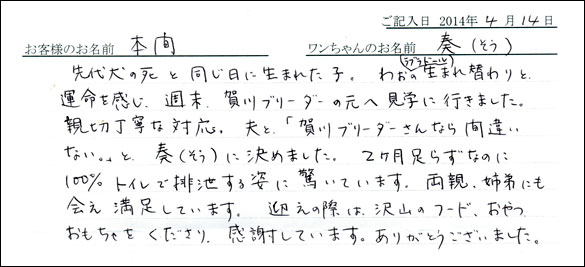 ご記入日 2014年 4月14日
お客様のお名前 本間 ワンちゃんのお名前 奏(そう)
(ラブラドール)
先代犬の死と同じ日に生まれた子。 わおの生まれ替わりと、
運命を感じ、週末、賀川ブリーダーの元へ見学に行きました。
親切丁寧な対応。夫と、「賀川ブリーダーさんなら間違い
ない。」と、奏(そう)に決めました。 2ヶ月足らずなのに
100% トイレで排泄する姿に驚いています。両親、姉弟にも
会え満足しています。 迎えの際は、沢山のフード、おやつ
おもちゃをくださり、感謝しています。ありがとうございました。